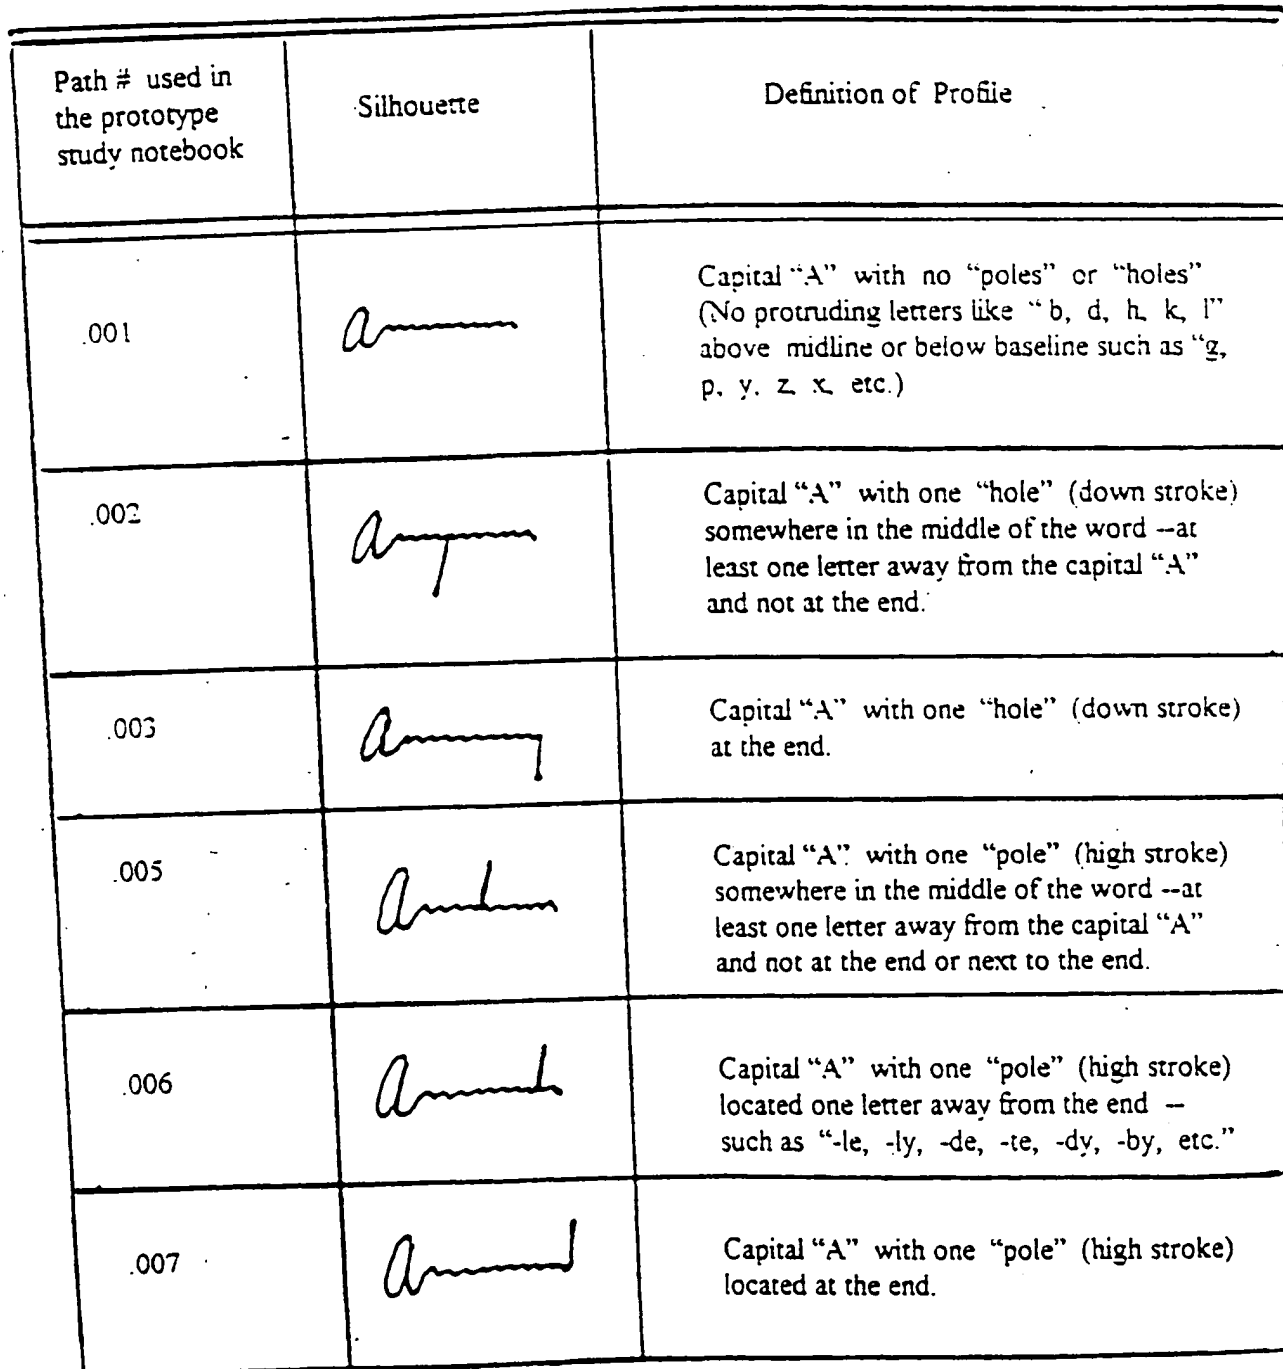 Path # used in
the prototype
study notebook
Silhouette
Definition of Profile
.001
Capital “A” with no “poles” or “holes”
(No protruding letters like “ b, d, h, k, l”
above midline or below baseline such as “g,
p, y, z, x, etc.)
.002
Capital “A” with one “hole” (down stroke)
somewhere in the middle of the word --at
least one letter away from the capital “A”
and not at the end.
.003
Capital “A” with one “hole” (down stroke)
at the end.
.005
Capital “A” with one “pole” (high stroke)
somewhere in the middle of the word --at
least one letter away from the capital “A”
and not at the end or next to the end.
.006
Capital “A” with one “pole” (high stroke)
located one letter away from the end --
such as “-le, -ly, -de, -te, -dy, -by, etc.”
.007
Capital “A” with one “pole” (high stroke)
located at the end.